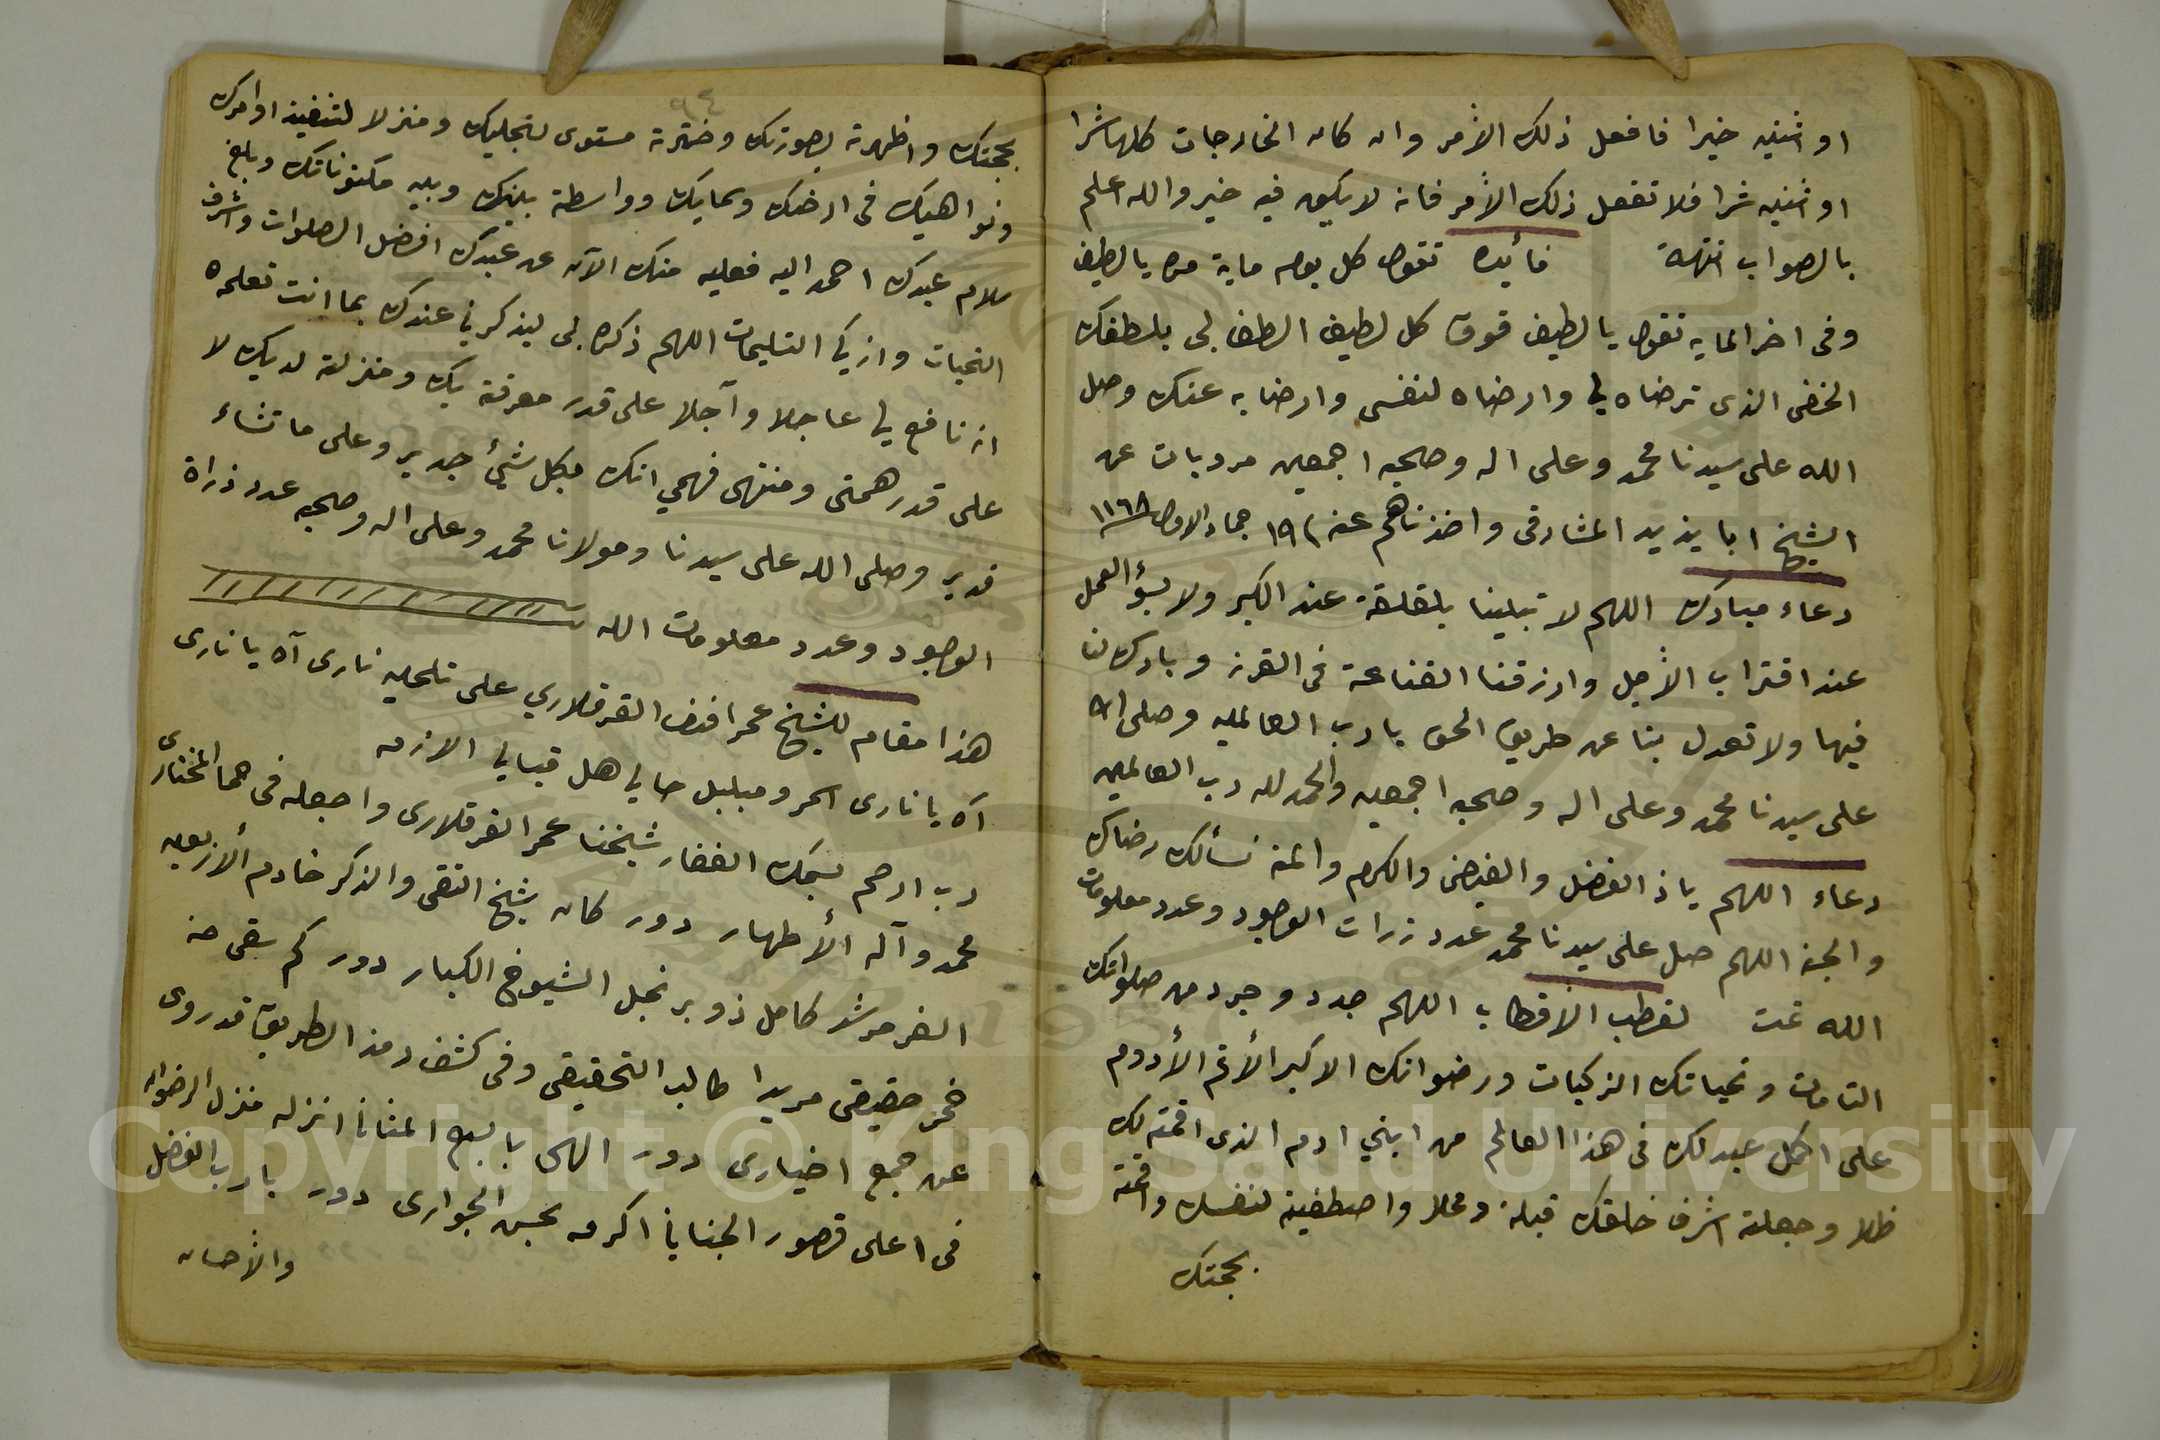 او اثنين خيرا فافعل ذلك الأمر وان كان الخارجات كلها شرا
او اثنين شرا فلا تفعل ذلك الأمر فانه لا يكون فيه خير والله اعلم
بالصواب انتهى فائده تقول كل يوم ماية مره يالطيف
وفى اخر المايه تقول يالطيف فوق كل لطيف الطف لى بلطفك
الخفى الذى ترضاه لي وارضاه لنفسى وارضا به عنك وصل
الله على سيدنا محمد وعلى اله وصحبه اجمعين مرويات عن
الشيخ ابا يزيد المشارقى واخذناهم عنه ١٩ جماد الاول ١١٦٨
دعاء مبارك اللهم لا تبلينا بلقلقة عند الكبر ولا بسؤ العمل
عند اقتراب الأجل وارزقنا القناعة فى القرز وبارك لنا
فيها ولا تعدل بنا عن طريق الحق يا رب العالمين وصلى الله
على سيدنا محمد وعلى اله وصحبه اجمعين والحمد لله رب العالمين
دعاء اللهم ياذ الفضل والفيض والكرم والمنه نسألك رضاك
والجنه اللهم صل على سيدنا محمد عدد زرات الوجود وعدد معلومات
الله تمت لقطب الأقطاب اللهم جدد وجرد من صلواتك
التامات وتحياتك الزكيات ورضوانك الاكبر الأتم الأدوم
على اكمل عبد لك فى هذا العالم من ابني ادم الذى اقمته لك
ظلا وجعلته اشرف خلقك قبلة ومحلا واصطفيته لنفسك واقمته
بحجتك
بحجتك واظهرته بصورتك وخترته مستوى لتجليك ومنزلا لتنفيذ اوامرك
ونواهيك فى ارضك وسمايك وواسطة بينك وبين مكنوناتك وبلغ
سلام عبدك احمد اليه فعليه منك الآن عن عبدك افضل الصلوات واشرف
التحيات وازيكي التسليمات اللهم ذكره لى ليذكرني عندك بما انت تعلمه
انه نافع لي عاجلا وآجلا على قدر معرفة بك ومنزلته لديك لا
على قدر همتى ومنتهى فهمي انك بكل شيئ جدير وعلى ما تشاء
قدير وصلى الله على سيدنا ومولانا محمد وعلى اله وصحبه عدد ذراة
الوجود وعدد معلومات الله
هذا مقام للشيخ عمر افند القرقلاري على تلحين نارى آه يا نارى
آه يا نارى اسحر ومبلبل حالي هل قبالي الازمه
رب ارحم بسمك الغفار شيخنا عمر القرقلارى واجعله فى حما المختارى
محمد وآله الأطهار دور كان شيخ التقى والذكر خادم ألاربعين
الغر مرشد كامل ذو بر نجل الشيوخ الكبار دور كم سقى من
خمر حقيقى مريدا طالب التحقيقى وفى كشف رمز الطريق قد روى
عن جمع اخيارى دور الهى بالسبع المثاني انزله منزل الرضوان
فى اعلى قصور الجناني اكرمه بحسن الجوارى دور يا رب الفضل
والأحسان
Copyright © King Saud University